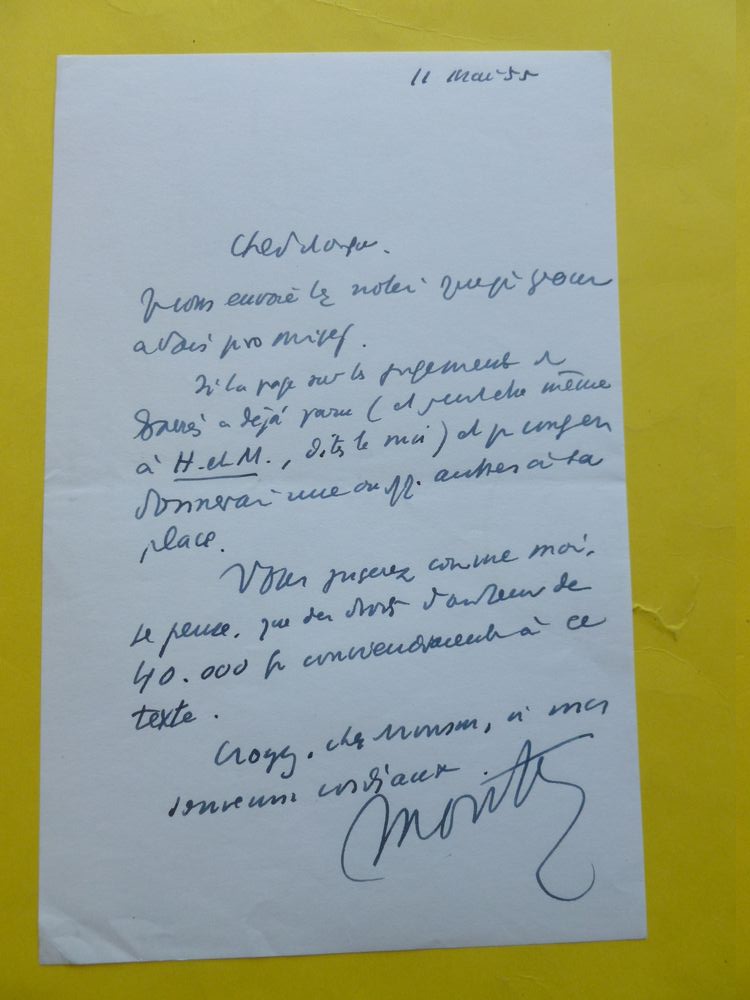 11 Mai 55
Cher Monsieur.
Je vous envoie les notes que je vous
avais promises.
Si la page sur les jugements de
Barrès a déjà paru (et peut-être même
à H. et M., dites le moi) et je vous en
donnerai une ou pp. autres à sa
place.
Vous jugerez comme moi,
je pense, que des droits d'auteur de
40.000 fr conviendraient à ce
texte.
Croyez, cher Monsieur, à mes
souvenirs cordiaux.